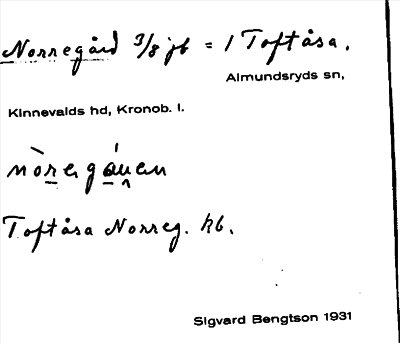 Norregård 3/8 jb = / Toftåsa.
Almundsryds sn,
Kinnevalds hd, Kronob. l.
Toftåsa Norreg. kb.
Sigvard Bengtson 1931